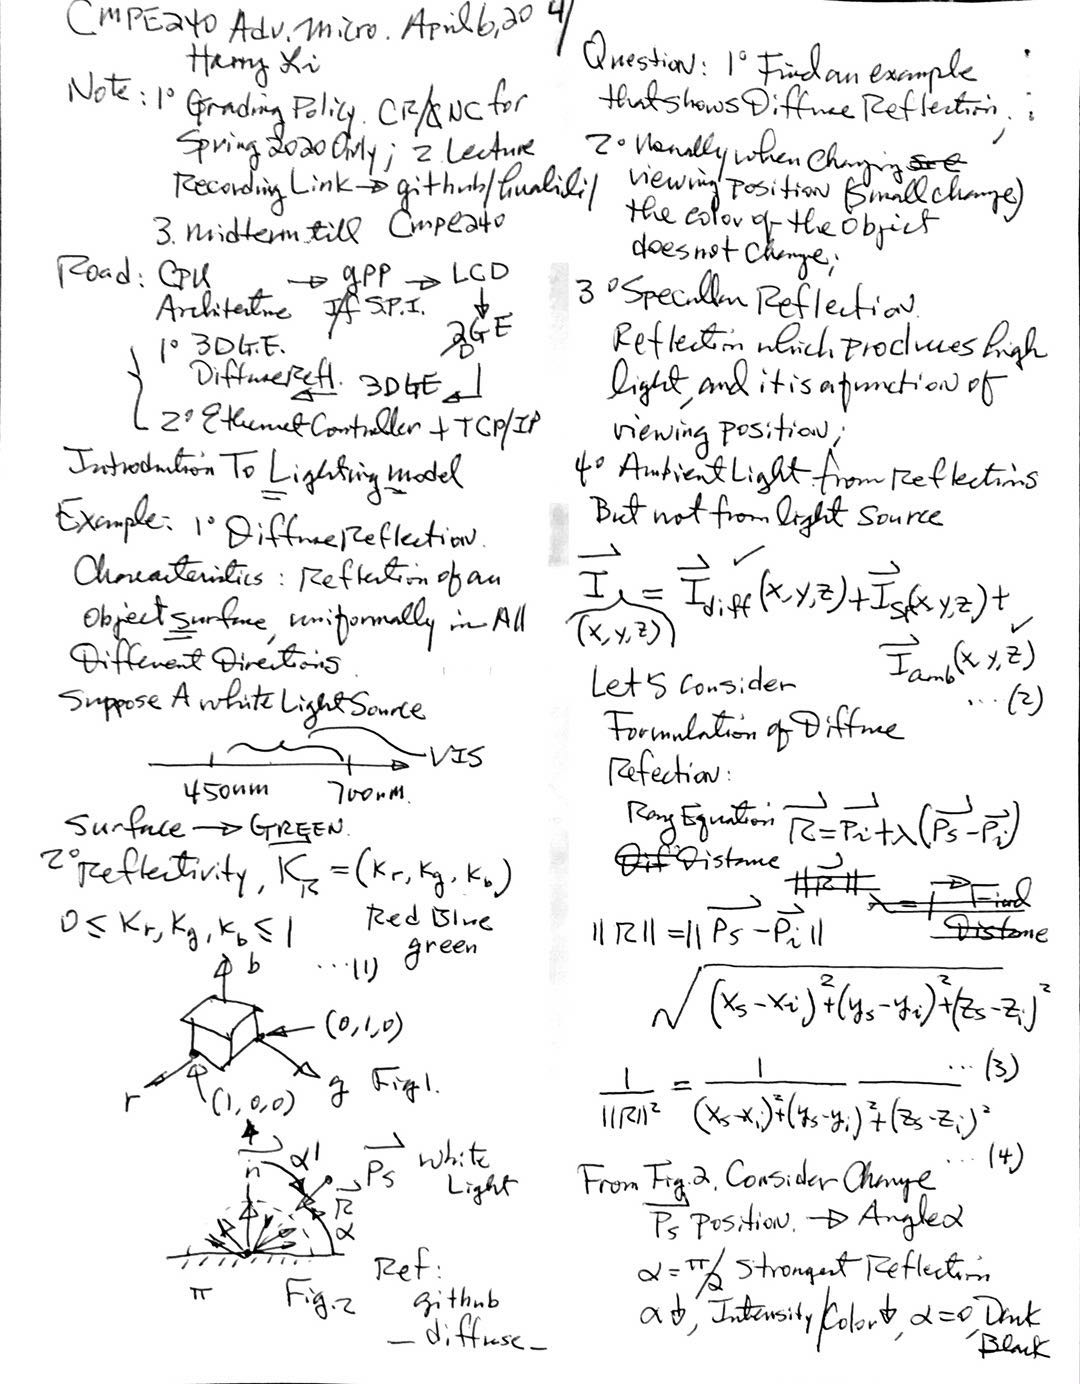 CMPE240 Adv. Micro. April 6, 20
Harry Li
Note: 1° Grading Policy. CR/NC for
Spring 2020 Only; 2 Lecture
Recording Link → github/hualili/
3. midterm till Cmpe240
Road: CPU → GPP → LCD
Architecture I/f S.P.I.
2DGE
1° 3DG.E.
Diffuse Refl. 3DGE
2° Ethernet Controller + TCP/IP
Introduction To Lighting model
Example: 1° Diffuse Reflection.
Characteristics: Reflection of an
object surface, uniformally in All
Different Directions.
Suppose A white Light Source
VIS
450nm 700nm.
Surface → GREEN.
2° Reflectivity, K_R = (Kr, Kg, Kb)
0 ≤ Kr, Kg, Kb ≤ 1 Red Blue
green
b ...(1)
(0,1,0)
r (1,0,0) g Fig 1.
n α' Ps white
Light
R
α
π Fig. 2 Ref:
github
_ diffuse _
4/
Question: 1° Find an example
that shows Diffuse Reflection.
2° Normally when Changing
viewing position (Small change)
the color of the object
does not change;
3° Specullar Reflection.
Reflection which produces high
light, and it is a function of
viewing position;
4° Ambient Light from Reflections
But not from light Source
I = I diff (x,y,z) + I sp(x,y,z) +
(x,y,z)
I amb (x,y,z)
... (2)
Let's Consider
Formulation of Diffuse
Refection:
Ray Equation R = Pi + λ(Ps - Pi)
Distance
||R|| = ||Ps - Pi||
√(xs - xi)² + (ys - yi)² + (zs - zi)²
... (3)
1/||R||² = 1/(xs - xi)² + (ys - yi)² + (zs - zi)²
... (4)
From Fig. 2, Consider Change
Ps position. → Angle α
α = π/2 Strongest Reflection
α ↓, Intensity/Color ↓, α = 0, Dark
Black